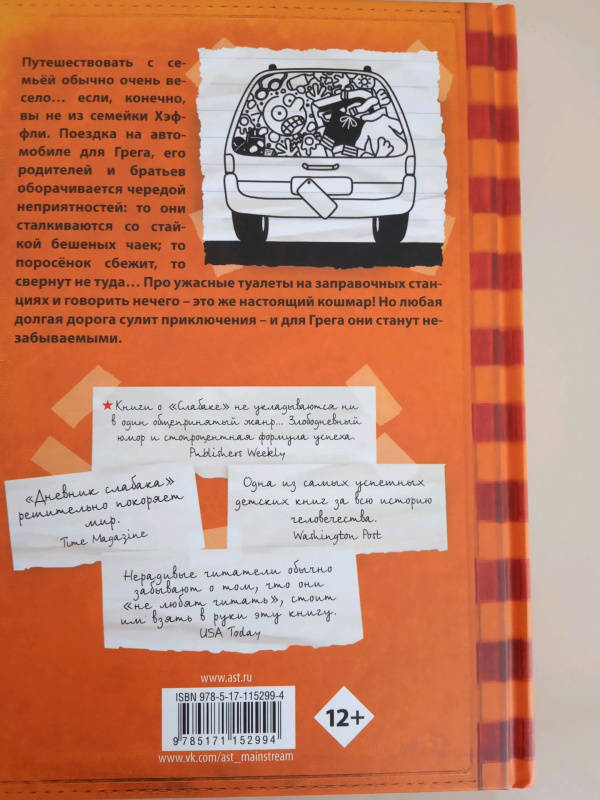 Путешествовать с се-
мьёй обычно очень ве-
село... если, конечно,
вы не из семейки Хэф-
фли. Поездка на авто-
мобиле для Грега, его
родителей и братьев
оборачивается чередой
неприятностей: то они
сталкиваются со стай-
кой бешеных чаек; то
поросёнок сбежит, то
свернут не туда... Про ужасные туалеты на заправочных стан-
циях и говорить нечего – это же настоящий кошмар! Но любая
долгая дорога сулит приключения – и для Грега они станут не-
забываемыми.
★Книги о «Слабаке» не укладываются ни
в один общепринятый жанр... Злободневный
юмор и стопроцентная формула успеха.
Publishers Weekly
«Дневник слабака»
решительно покоряет
мир.
Time Magazine
Одна из самых успешных
детских книг за всю историю
человечества.
Washington Post
Нерадивые читатели обычно
забывают о том, что они
«не любят читать», стоит
им взять в руки эту книгу.
USA Today
www.ast.ru
ISBN 978-5-17-115299-4
9 785171 152994
www.vk.com/ast_mainstream
12+